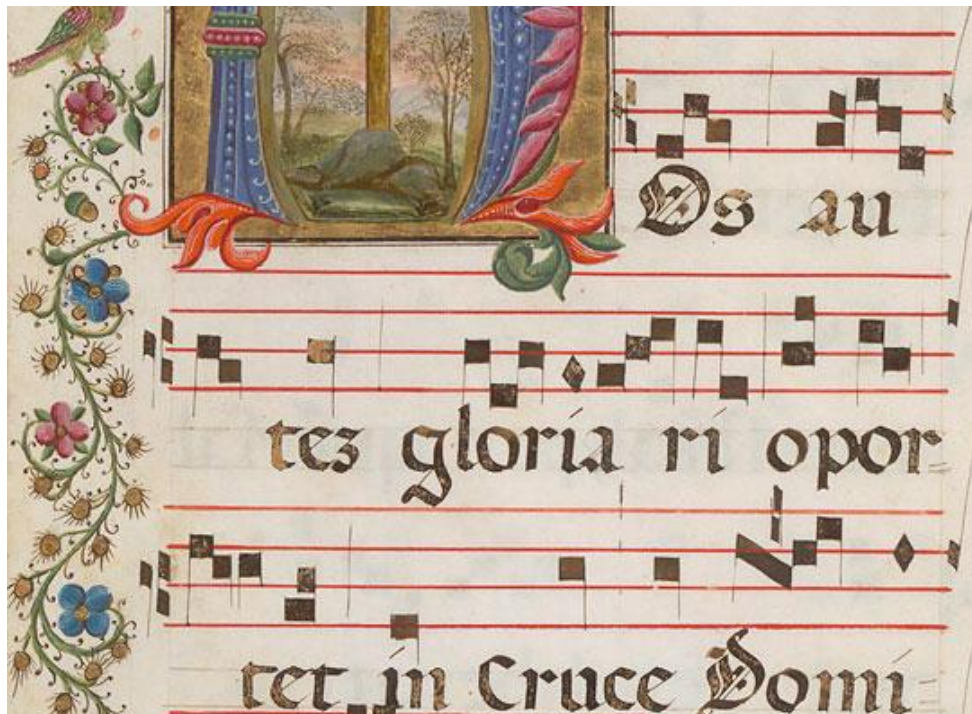 Os au
tez gloria ri opor=
tet in Cruce Domi